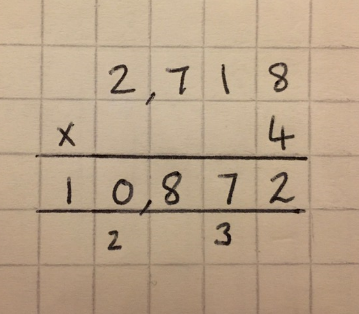 2,718
x 4
10,872
2 3